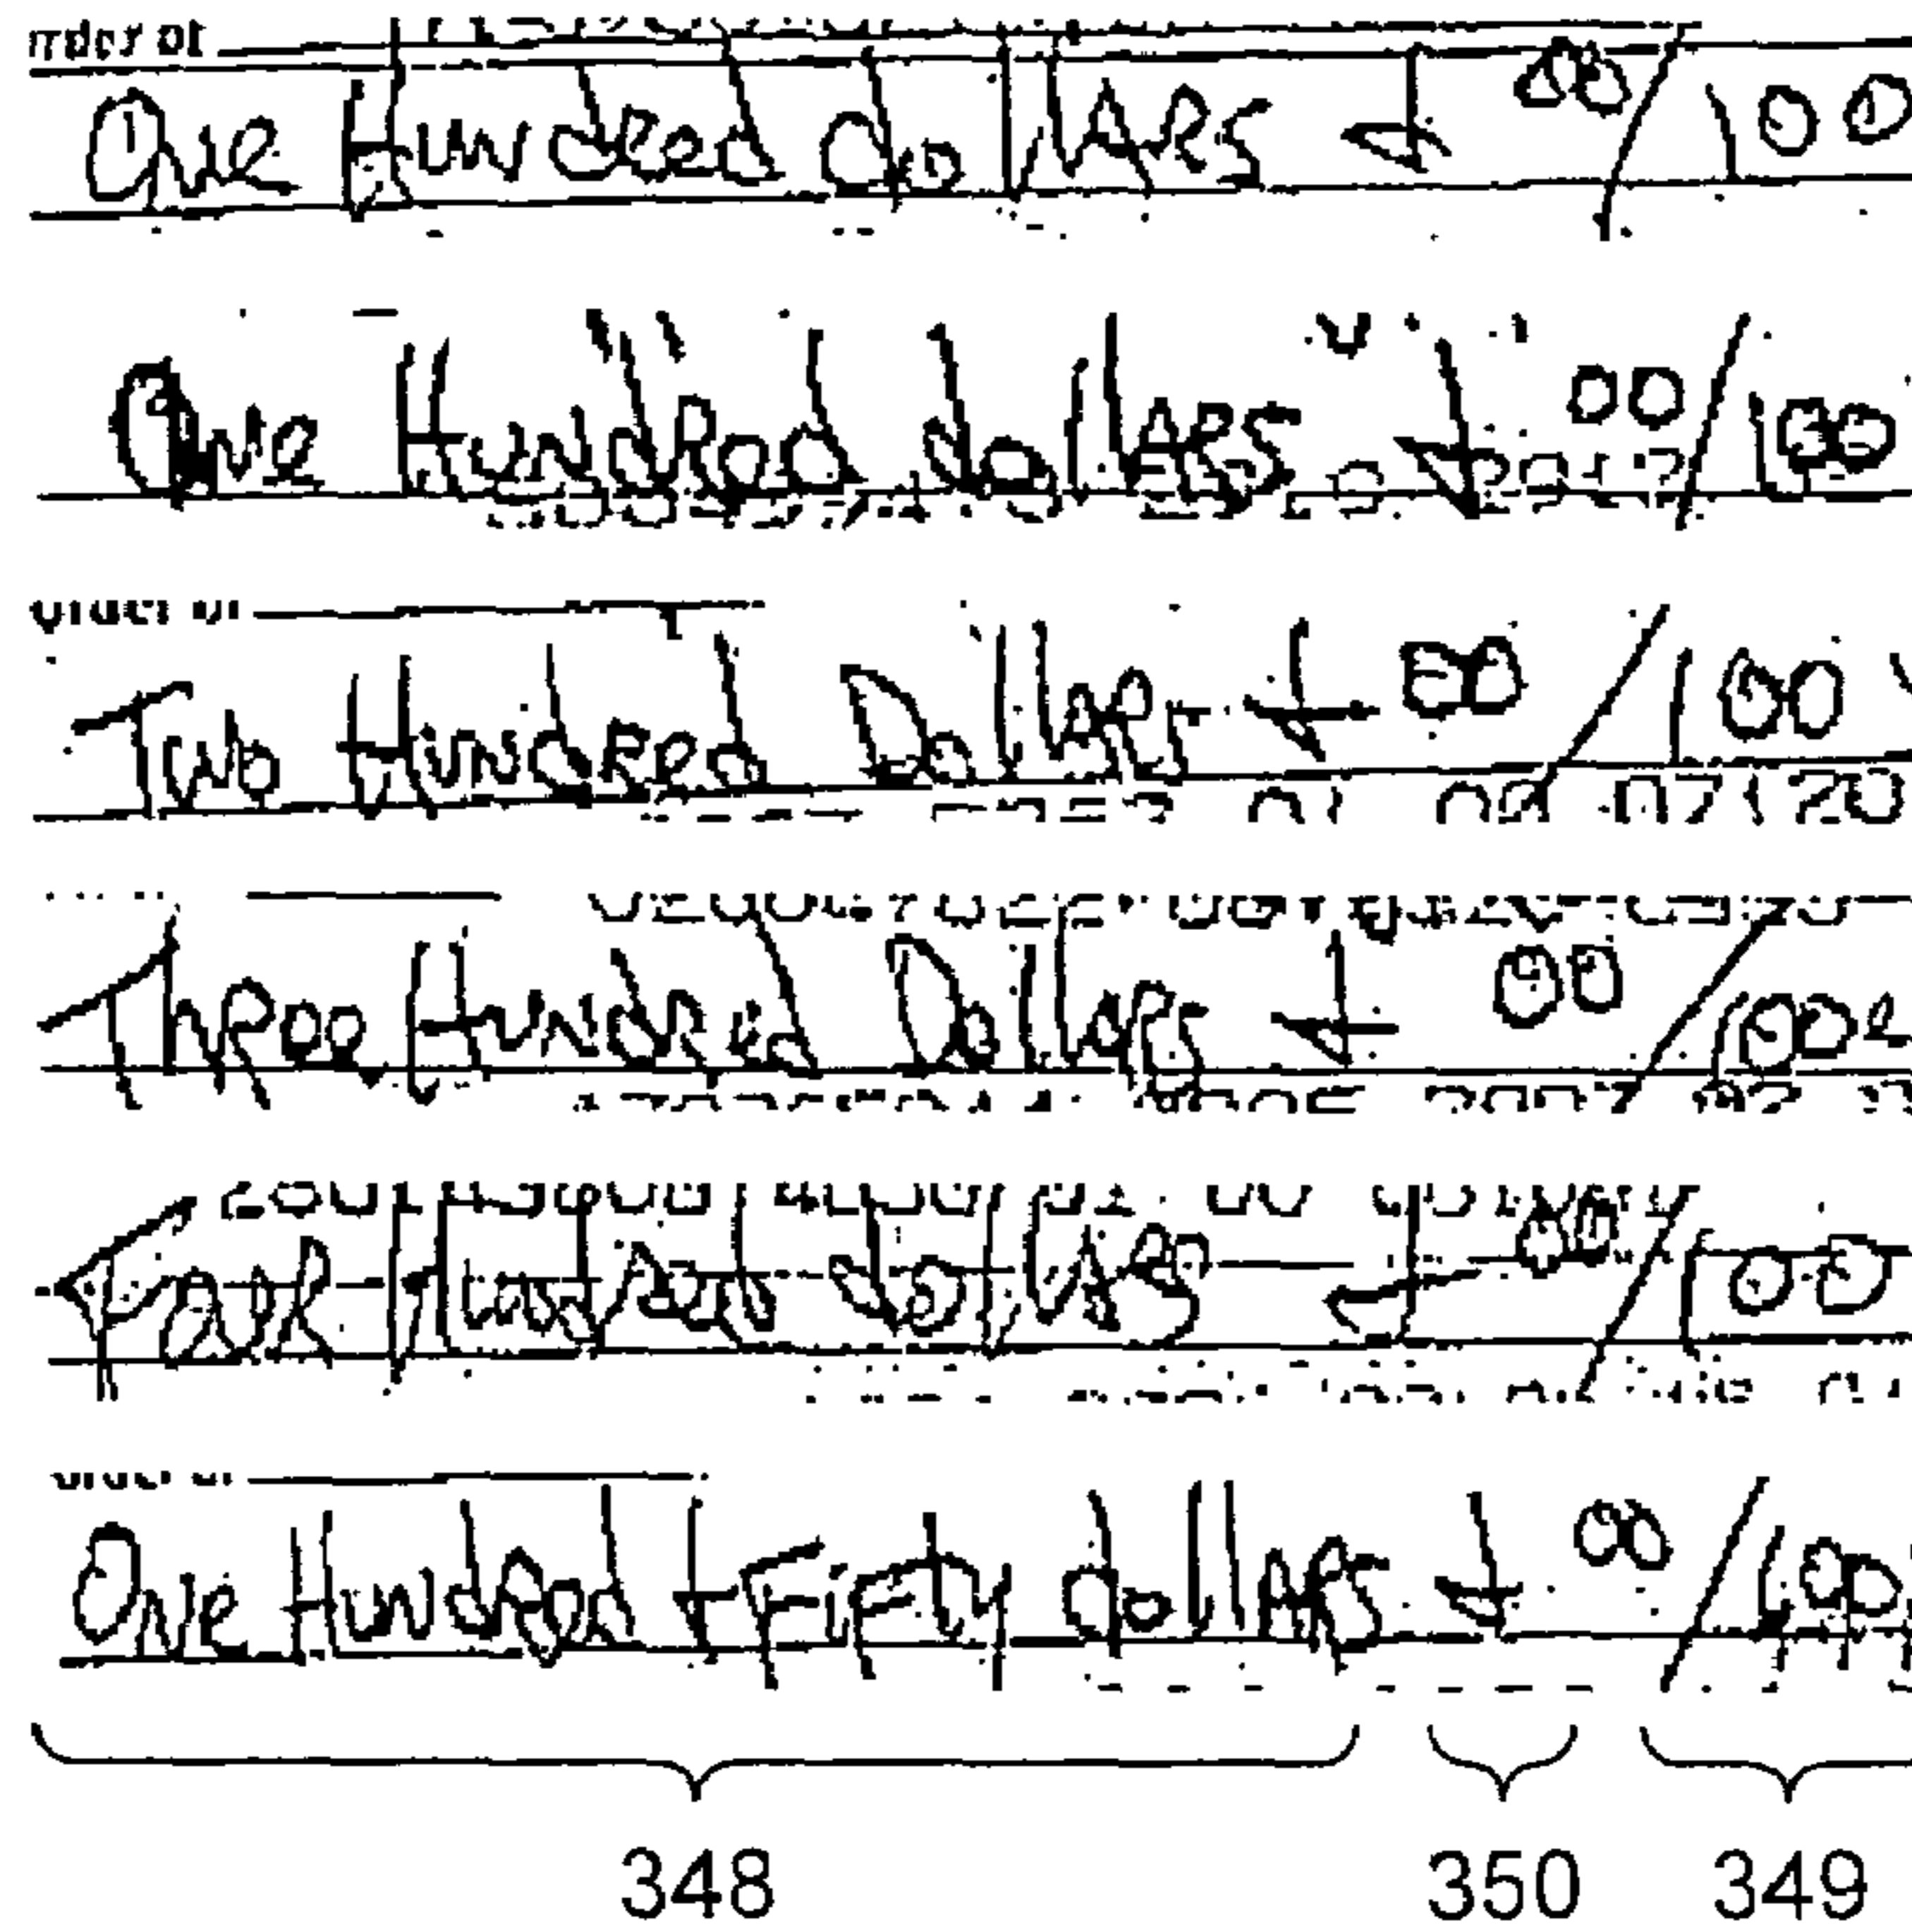 One Hundred dollars + 00/100
One Hundred dollars + 00/100
order of
Two Hundred Dollars + 00/100
Three Hundred Dollars + 00/100
Hundred dollars + 00/100
One Hundred + Fifty dollars + 00/100
348 350 349